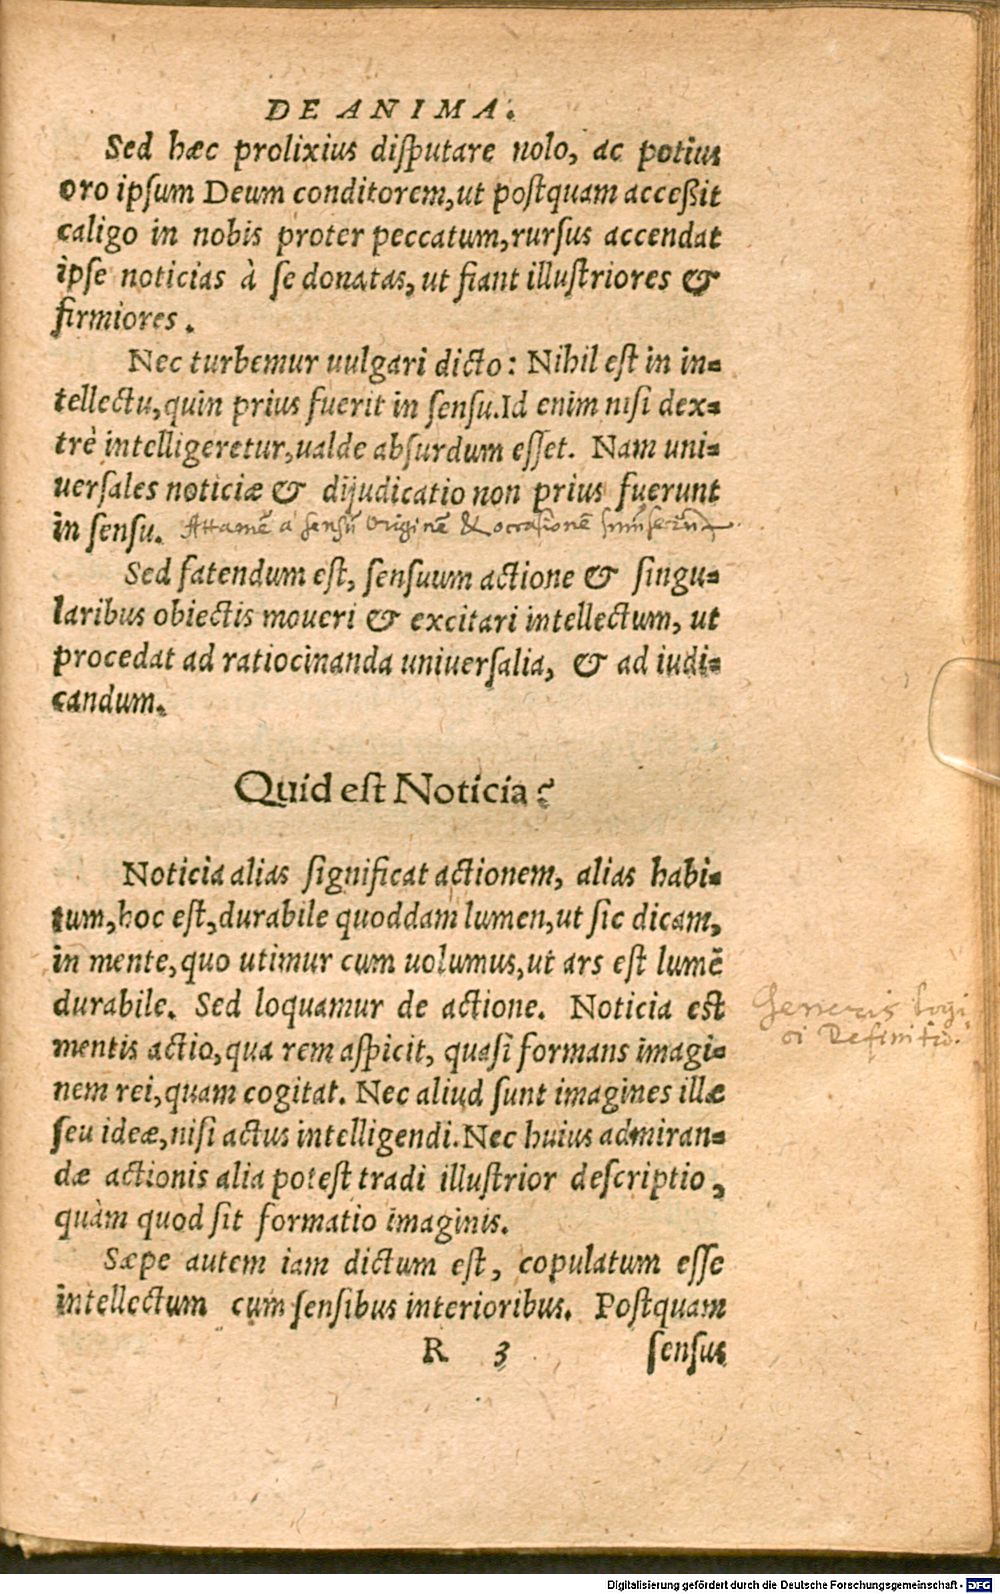 DE ANIMA.
Sed hæc prolixius diſputare nolo, ac potius
oro ipſum Deum conditorem,ut poſtquam acceßit
caligo in nobis proter peccatum,rurſus accendat
ipſe noticias à ſe donatas, ut fiant illuſtriores &
firmiores.
Nec turbemur uulgari dicto: Nihil eſt in in-
tellectu,quin prius fuerit in ſenſu.Id enim niſi dex-
trè intelligeretur,ualde abſurdum eſſet. Nam uni-
uerſales noticiæ & dijudicatio non prius fuerunt
in ſenſu. Attamē a ſenſu originē & occaſionē
Sed fatendum eſt, ſenſuum actione & ſingu-
laribus obiectis moueri & excitari intellectum, ut
procedat ad ratiocinanda uniuerſalia, & ad iudi-
candum.
Quid eſt Noticia?
Noticia alias ſignificat actionem, alias habi-
tum,hoc eſt,durabile quoddam lumen,ut ſic dicam,
in mente,quo utimur cum uolumus,ut ars eſt lumē
durabile. Sed loquamur de actione. Noticia est
mentis actio,qua rem aſpicit, quaſi formans imagi-
nem rei,quam cogitat. Nec aliud ſunt imagines illæ
ſeu ideæ,niſi actus intelligendi.Nec huius admiran-
dæ actionis alia poteſt tradi illuſtrior deſcriptio,
quàm quod ſit formatio imaginis.
Sæpe autem iam dictum eſt, copulatum eſſe
intellectum cum ſenſibus interioribus. Poſtquam
R 3 ſenſus
Generis
Definitio.
Digitalisierung gefördert durch die Deutsche Forschungsgemeinschaft - DFG